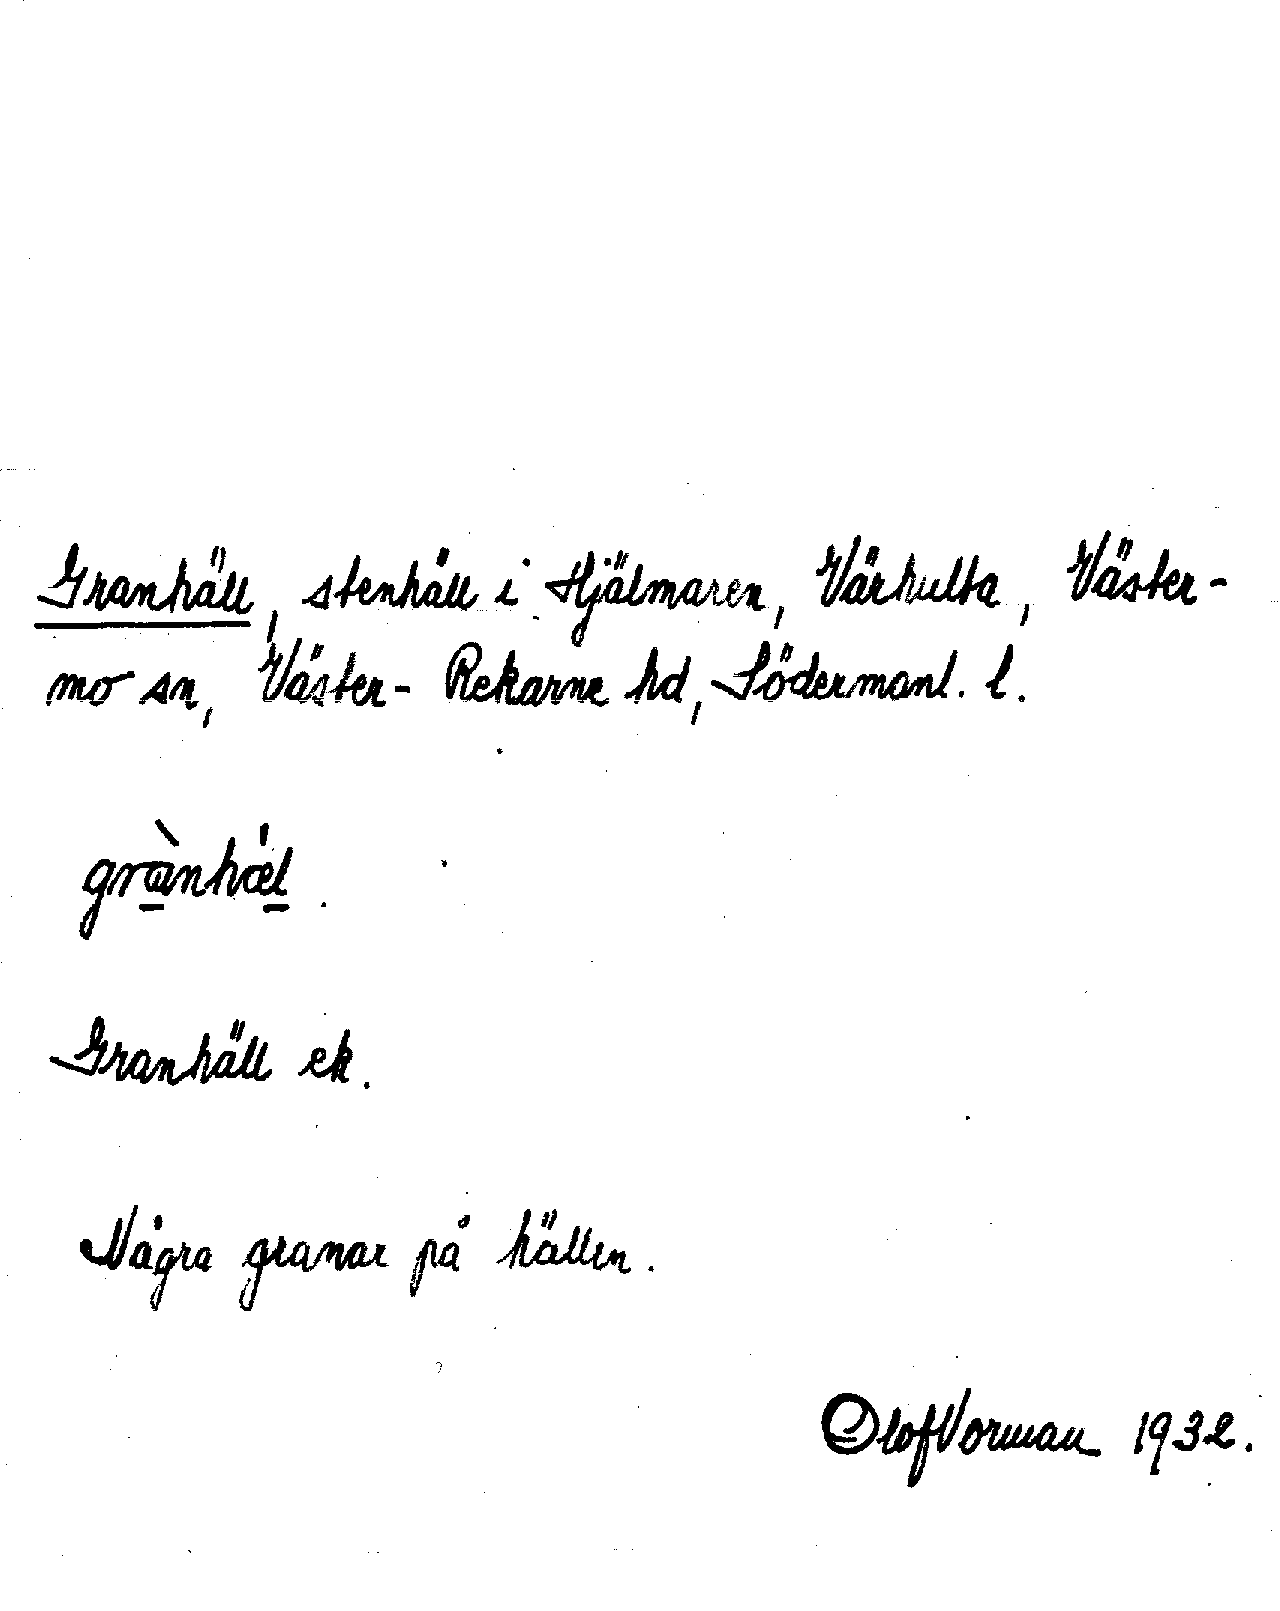 Granhäll, stenhäll i Hjälmaren, Vårhulta, Väster-
mo sn, Väster-Rekarne hd, Södermanl. l.
grànhæ̍l.
Granhäll ek.
Några granar på hällen.
Olof Vorman 1932.